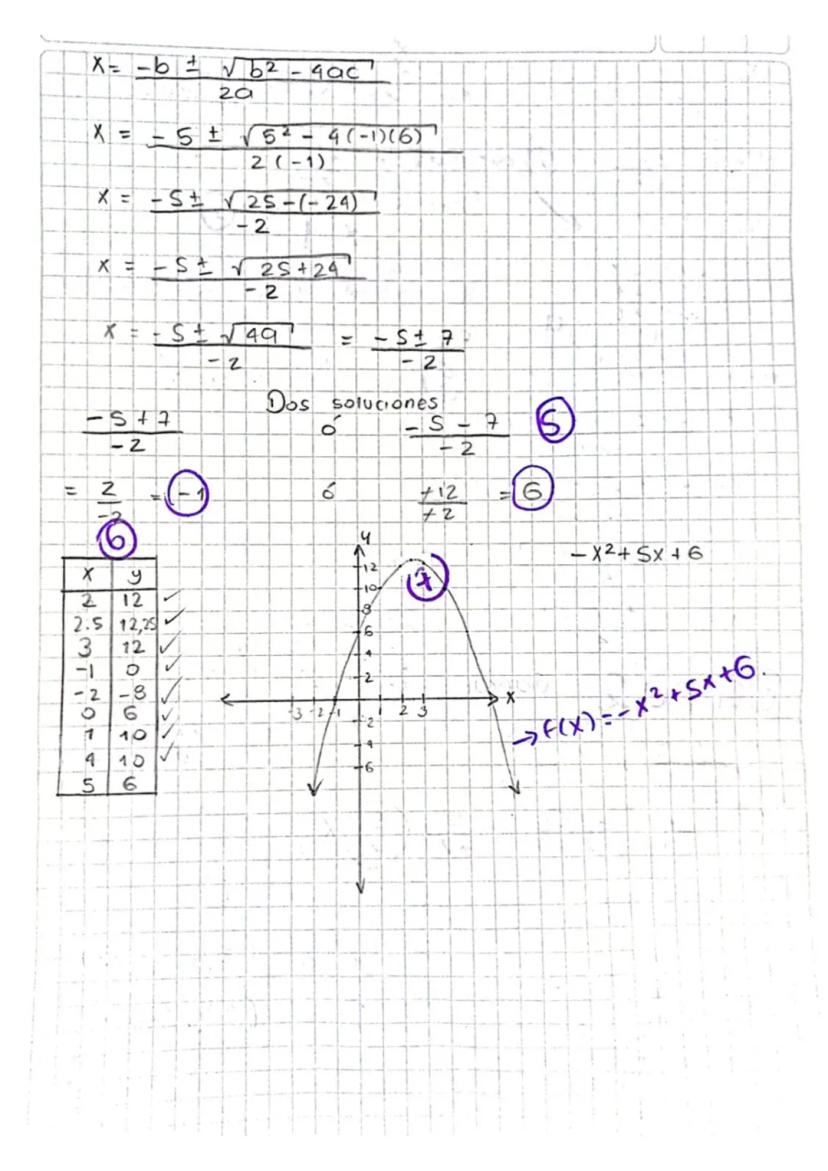 x = -b ± √b² - 4ac / 2a
x = -5 ± √5² - 4(-1)(6) / 2(-1)
x = -5 ± √25-(-24) / -2
x = -5 ± √25+24 / -2
x = -5 ± √49 / -2 = -5 ± 7 / -2
Dos soluciones
-5+7 / -2 ó -5-7 / -2 5
= 2 / -2 = -1 ó +12 / +2 = 6
6
x y
2 12 ✓
2.5 12,25 ✓
3 12 ✓
-1 0 ✓
-2 -8 ✓
0 6 ✓
1 10 ✓
4 10 ✓
5 6
y
12
10
8
6
4
2
-3 -2 -1 1 2 3 x
-2
-4
-6
7
-x²+5x+6
→ f(x) = -x²+5x+6.